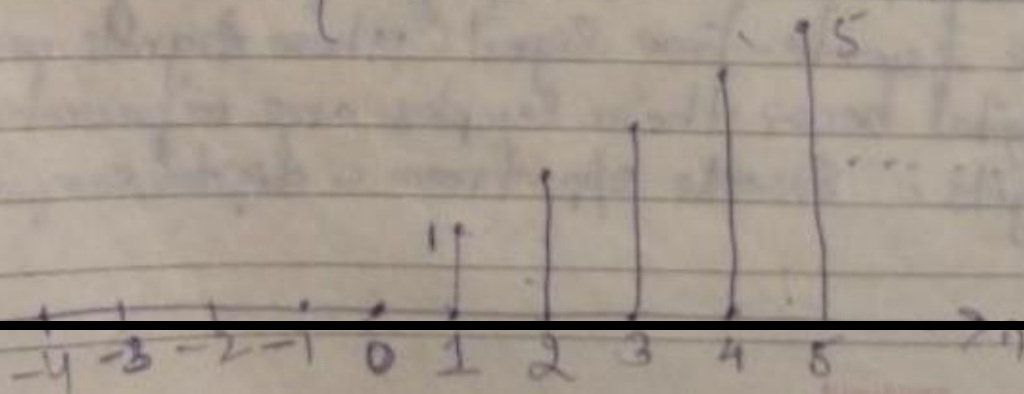 5
1
-4 -3 -2 -1 0 1 2 3 4 5